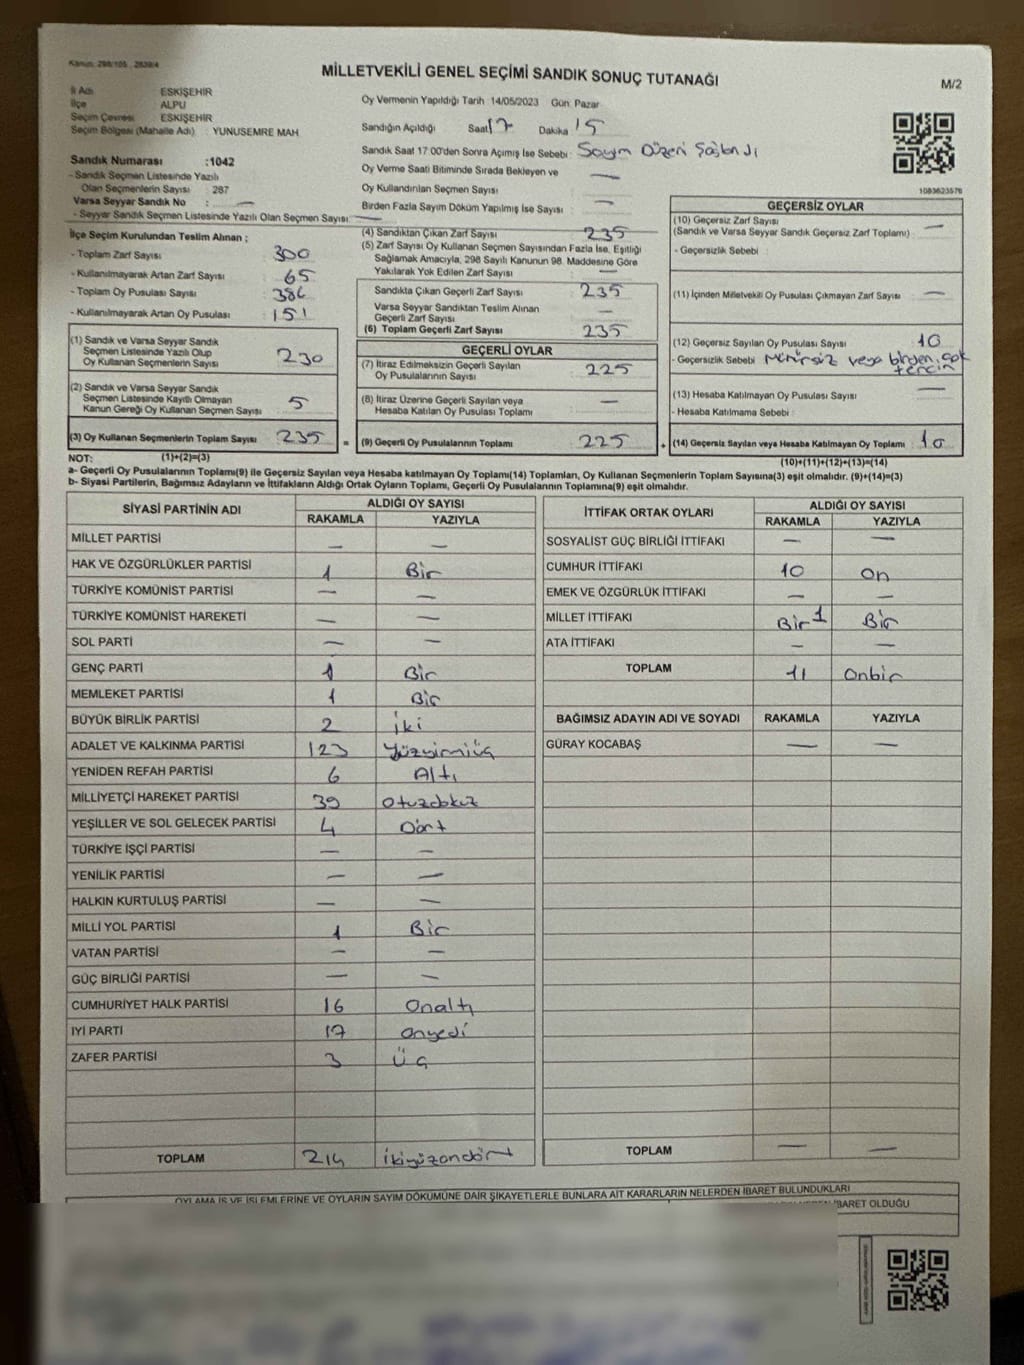 Kanun: 298/105 , 2839/4
MİLLETVEKİLİ GENEL SEÇİMİ SANDIK SONUÇ TUTANAĞI
M/2
İl Adı ESKİŞEHİR
İlçe ALPU
Seçim Çevresi ESKİŞEHİR
Seçim Bölgesi (Mahalle Adı) : YUNUSEMRE MAH
Oy Vermenin Yapıldığı Tarih :14/05/2023 Gün: Pazar
Sandığın Açıldığı Saat 17 Dakika 15
Sandık Saat 17:00'den Sonra Açımış İse Sebebi : Sayım Düzeni Sağlandı
Oy Verme Saati Bitiminde Sırada Bekleyen ve
Oy Kullandırılan Seçmen Sayısı : —
Birden Fazla Sayım Döküm Yapılmış İse Sayısı : —
1083623576
Sandık Numarası :1042
- Sandık Seçmen Listesinde Yazılı
Olan Seçmenlerin Sayısı : 287
Varsa Seyyar Sandık No : —
- Seyyar Sandık Seçmen Listesinde Yazılı Olan Seçmen Sayısı: —
İlçe Seçim Kurulundan Teslim Alınan ;
- Toplam Zarf Sayısı : 300
- Kullanılmayarak Artan Zarf Sayısı : 65
- Toplam Oy Pusulası Sayısı : 386
- Kullanılmayarak Artan Oy Pusulası : 151
(1) Sandık ve Varsa Seyyar Sandık
Seçmen Listesinde Yazılı Olup
Oy Kullanan Seçmenlerin Sayısı : 230
(2) Sandık ve Varsa Seyyar Sandık
Seçmen Listesinde Kayıtlı Olmayan
Kanun Gereği Oy Kullanan Seçmen Sayısı : 5
(3) Oy Kullanan Seçmenlerin Toplam Sayısı : 235 =
(4) Sandıktan Çıkan Zarf Sayısı : 235
(5) Zarf Sayısı Oy Kullanan Seçmen Sayısından Fazla İse, Eşitliği
Sağlamak Amacıyla, 298 Sayılı Kanunun 98. Maddesine Göre
Yakılarak Yok Edilen Zarf Sayısı : —
Sandıkta Çıkan Geçerli Zarf Sayısı : 235
Varsa Seyyar Sandıktan Teslim Alınan
Geçerli Zarf Sayısı : —
(6) Toplam Geçerli Zarf Sayısı : 235
GEÇERLİ OYLAR
(7) İtiraz Edilmeksizin Geçerli Sayılan
Oy Pusulalarının Sayısı : 225
(8) İtiraz Üzerine Geçerli Sayılan veya
Hesaba Katılan Oy Pusulası Toplamı : —
(9) Geçerli Oy Pusulalarının Toplamı : 225 +
GEÇERSİZ OYLAR
(10) Geçersiz Zarf Sayısı
(Sandık ve Varsa Seyyar Sandık Geçersiz Zarf Toplamı) : —
- Geçersizlik Sebebi :
(11) İçinden Milletvekili Oy Pusulası Çıkmayan Zarf Sayısı : —
(12) Geçersiz Sayılan Oy Pusulası Sayısı : 10
- Geçersizlik Sebebi : Mühürsüz veya birden çok
tercih
(13) Hesaba Katılmayan Oy Pusulası Sayısı : —
- Hesaba Katılmama Sebebi :
(14) Geçersiz Sayılan veya Hesaba Katılmayan Oy Toplamı : 10
NOT: (1)+(2)=(3)
(10)+(11)+(12)+(13)=(14)
a- Geçerli Oy Pusulalarının Toplamı(9) ile Geçersiz Sayılan veya Hesaba katılmayan Oy Toplamı(14) Toplamları, Oy Kullanan Seçmenlerin Toplam Sayısına(3) eşit olmalıdır. (9)+(14)=(3)
b- Siyasi Partilerin, Bağımsız Adayların ve İttifakların Aldığı Ortak Oyların Toplamı, Geçerli Oy Pusulalarının Toplamına(9) eşit olmalıdır.
SİYASİ PARTİNİN ADI ALDIĞI OY SAYISI
RAKAMLA YAZIYLA
MİLLET PARTİSİ — —
HAK VE ÖZGÜRLÜKLER PARTİSİ 1 Bir
TÜRKİYE KOMÜNİST PARTİSİ — —
TÜRKİYE KOMÜNİST HAREKETİ — —
SOL PARTİ — —
GENÇ PARTİ 1 Bir
MEMLEKET PARTİSİ 1 Bir
BÜYÜK BİRLİK PARTİSİ 2 İki
ADALET VE KALKINMA PARTİSİ 123 Yüzyirmiüç
YENİDEN REFAH PARTİSİ 6 Altı
MİLLİYETÇİ HAREKET PARTİSİ 39 Otuzdokuz
YEŞİLLER VE SOL GELECEK PARTİSİ 4 Dört
TÜRKİYE İŞÇİ PARTİSİ — —
YENİLİK PARTİSİ — —
HALKIN KURTULUŞ PARTİSİ — —
MİLLİ YOL PARTİSİ 1 Bir
VATAN PARTİSİ — —
GÜÇ BİRLİĞİ PARTİSİ — —
CUMHURİYET HALK PARTİSİ 16 Onaltı
İYİ PARTİ 17 onyedi
ZAFER PARTİSİ 3 Üç
TOPLAM 214 ikiyüzondört
İTTİFAK ORTAK OYLARI ALDIĞI OY SAYISI
RAKAMLA YAZIYLA
SOSYALİST GÜÇ BİRLİĞİ İTTİFAKI — —
CUMHUR İTTİFAKI 10 on
EMEK VE ÖZGÜRLÜK İTTİFAKI — —
MİLLET İTTİFAKI Bir 1 Bir
ATA İTTİFAKI — —
TOPLAM 11 Onbir
BAĞIMSIZ ADAYIN ADI VE SOYADI RAKAMLA YAZIYLA
GÜRAY KOCABAŞ — —
TOPLAM — —
OYLAMA İŞ VE İŞLEMLERİNE VE OYLARIN SAYIM DÖKÜMÜNE DAİR ŞİKAYETLERLE BUNLARA AİT KARARLARIN NELERDEN İBARET BULUNDUKLARI
İBARET OLDUĞU